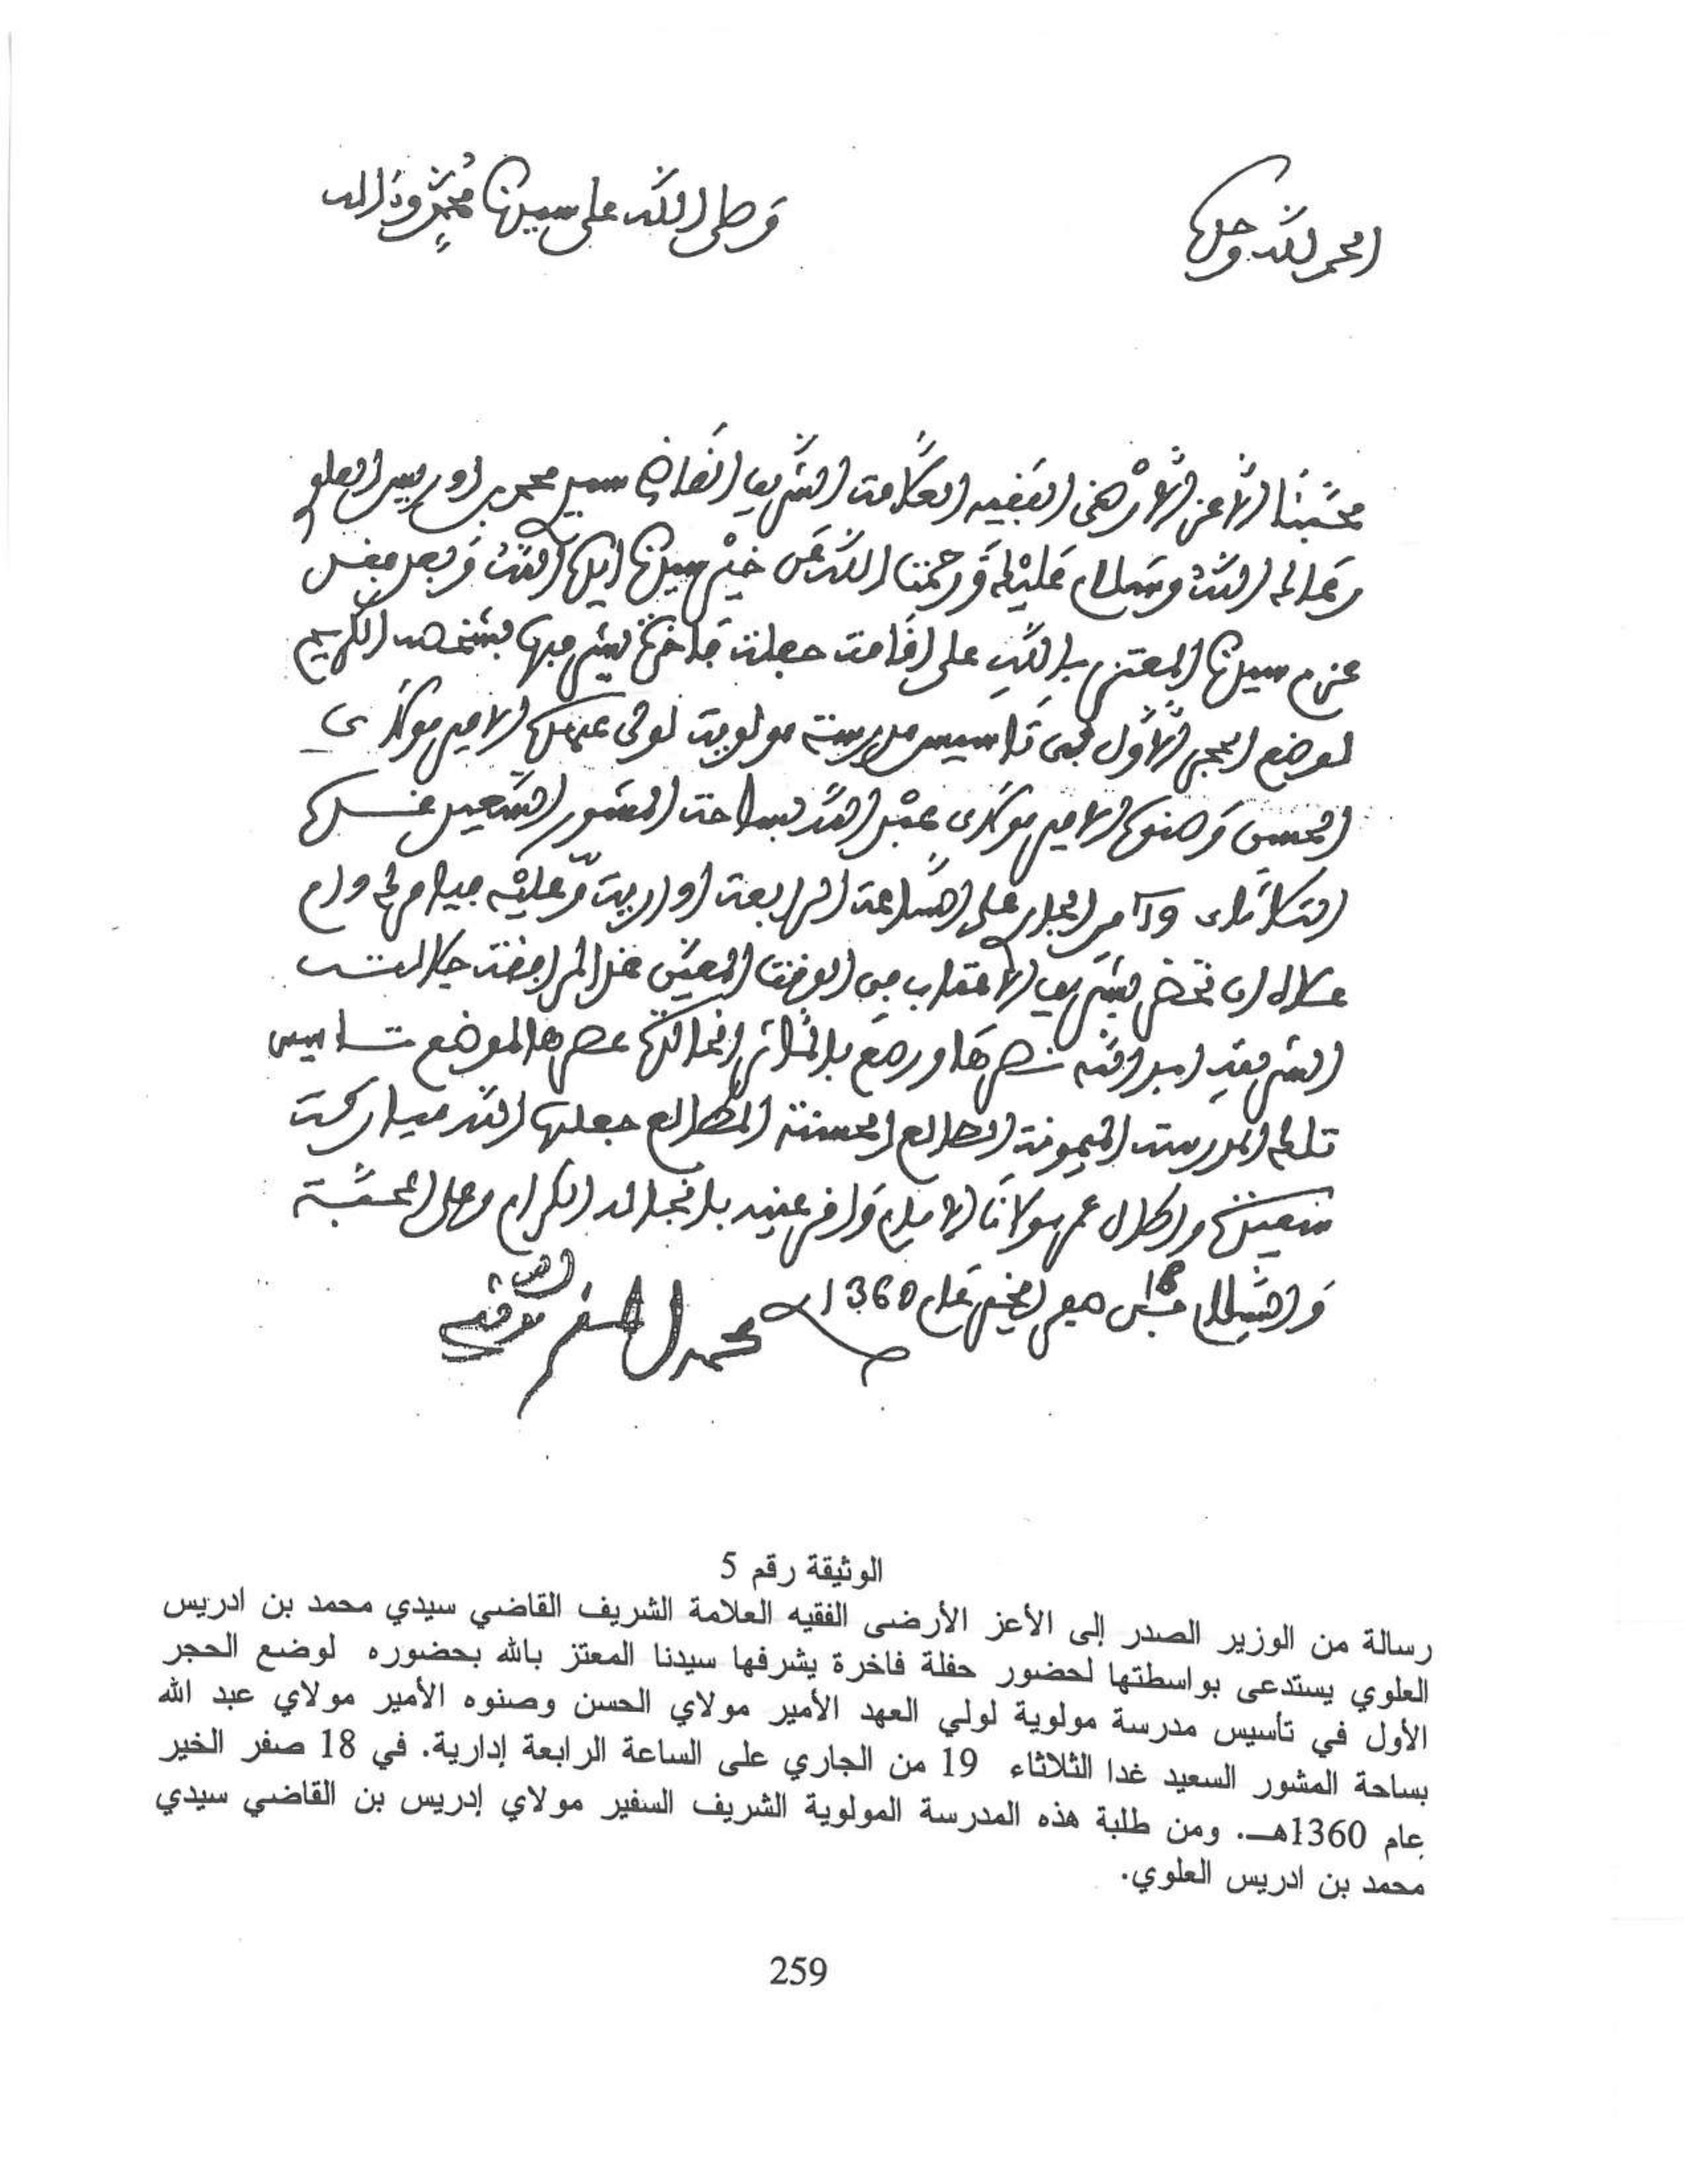 الحمد لله وحده
وصلى الله على سيدنا محمد وءاله
محبنا الأعز الأرضى الفقيه العلامة الشريف القاضي سيدي محمد بن ادريس العلوي
رعاك الله وسلام عليك ورحمت الله عن خير سيدنا أيده الله وبعد فقد
عزم سيدنا المعتز بالله على إقامة حفلة فاخرة يشرفها بشخصه الكريم
لوضع الحجر الأول في تأسيس مدرسة مولوية لولي عهده الأمير مولاي
الحسن وصنوه الأمير مولاي عبد الله بساحة المشور السعيد غدا
الثلاثاء 19 من الجاري على الساعة الرابعة إدارية وعليه فيامرك دام
علاه ان تحضر بشريف الأعتاب في الوقت المعين
الشريفة نصرها
تلك المدرسة الميمونة الطالع الحسنة المطالع جعلها الله مباركة
سعيدة وأطال عمر مولانا الإمام وأقر عينيه بأنجاله الكرام وعلى المحبة
والسلام في 18 صفر الخير عام 1360
محمد المقري وفقه الله
الوثيقة رقم 5
رسالة من الوزير الصدر إلى الأعز الأرضى الفقيه العلامة الشريف القاضي سيدي محمد بن ادريس
العلوي يستدعى بواسطتها لحضور حفلة فاخرة يشرفها سيدنا المعتز بالله بحضوره لوضع الحجر
الأول في تأسيس مدرسة مولوية لولي العهد الأمير مولاي الحسن وصنوه الأمير مولاي عبد الله
بساحة المشور السعيد غدا الثلاثاء 19 من الجاري على الساعة الرابعة إدارية. في 18 صفر الخير
عام 1360هـ. ومن طلبة هذه المدرسة المولوية الشريف السفير مولاي إدريس بن القاضي سيدي
محمد بن ادريس العلوي.
259